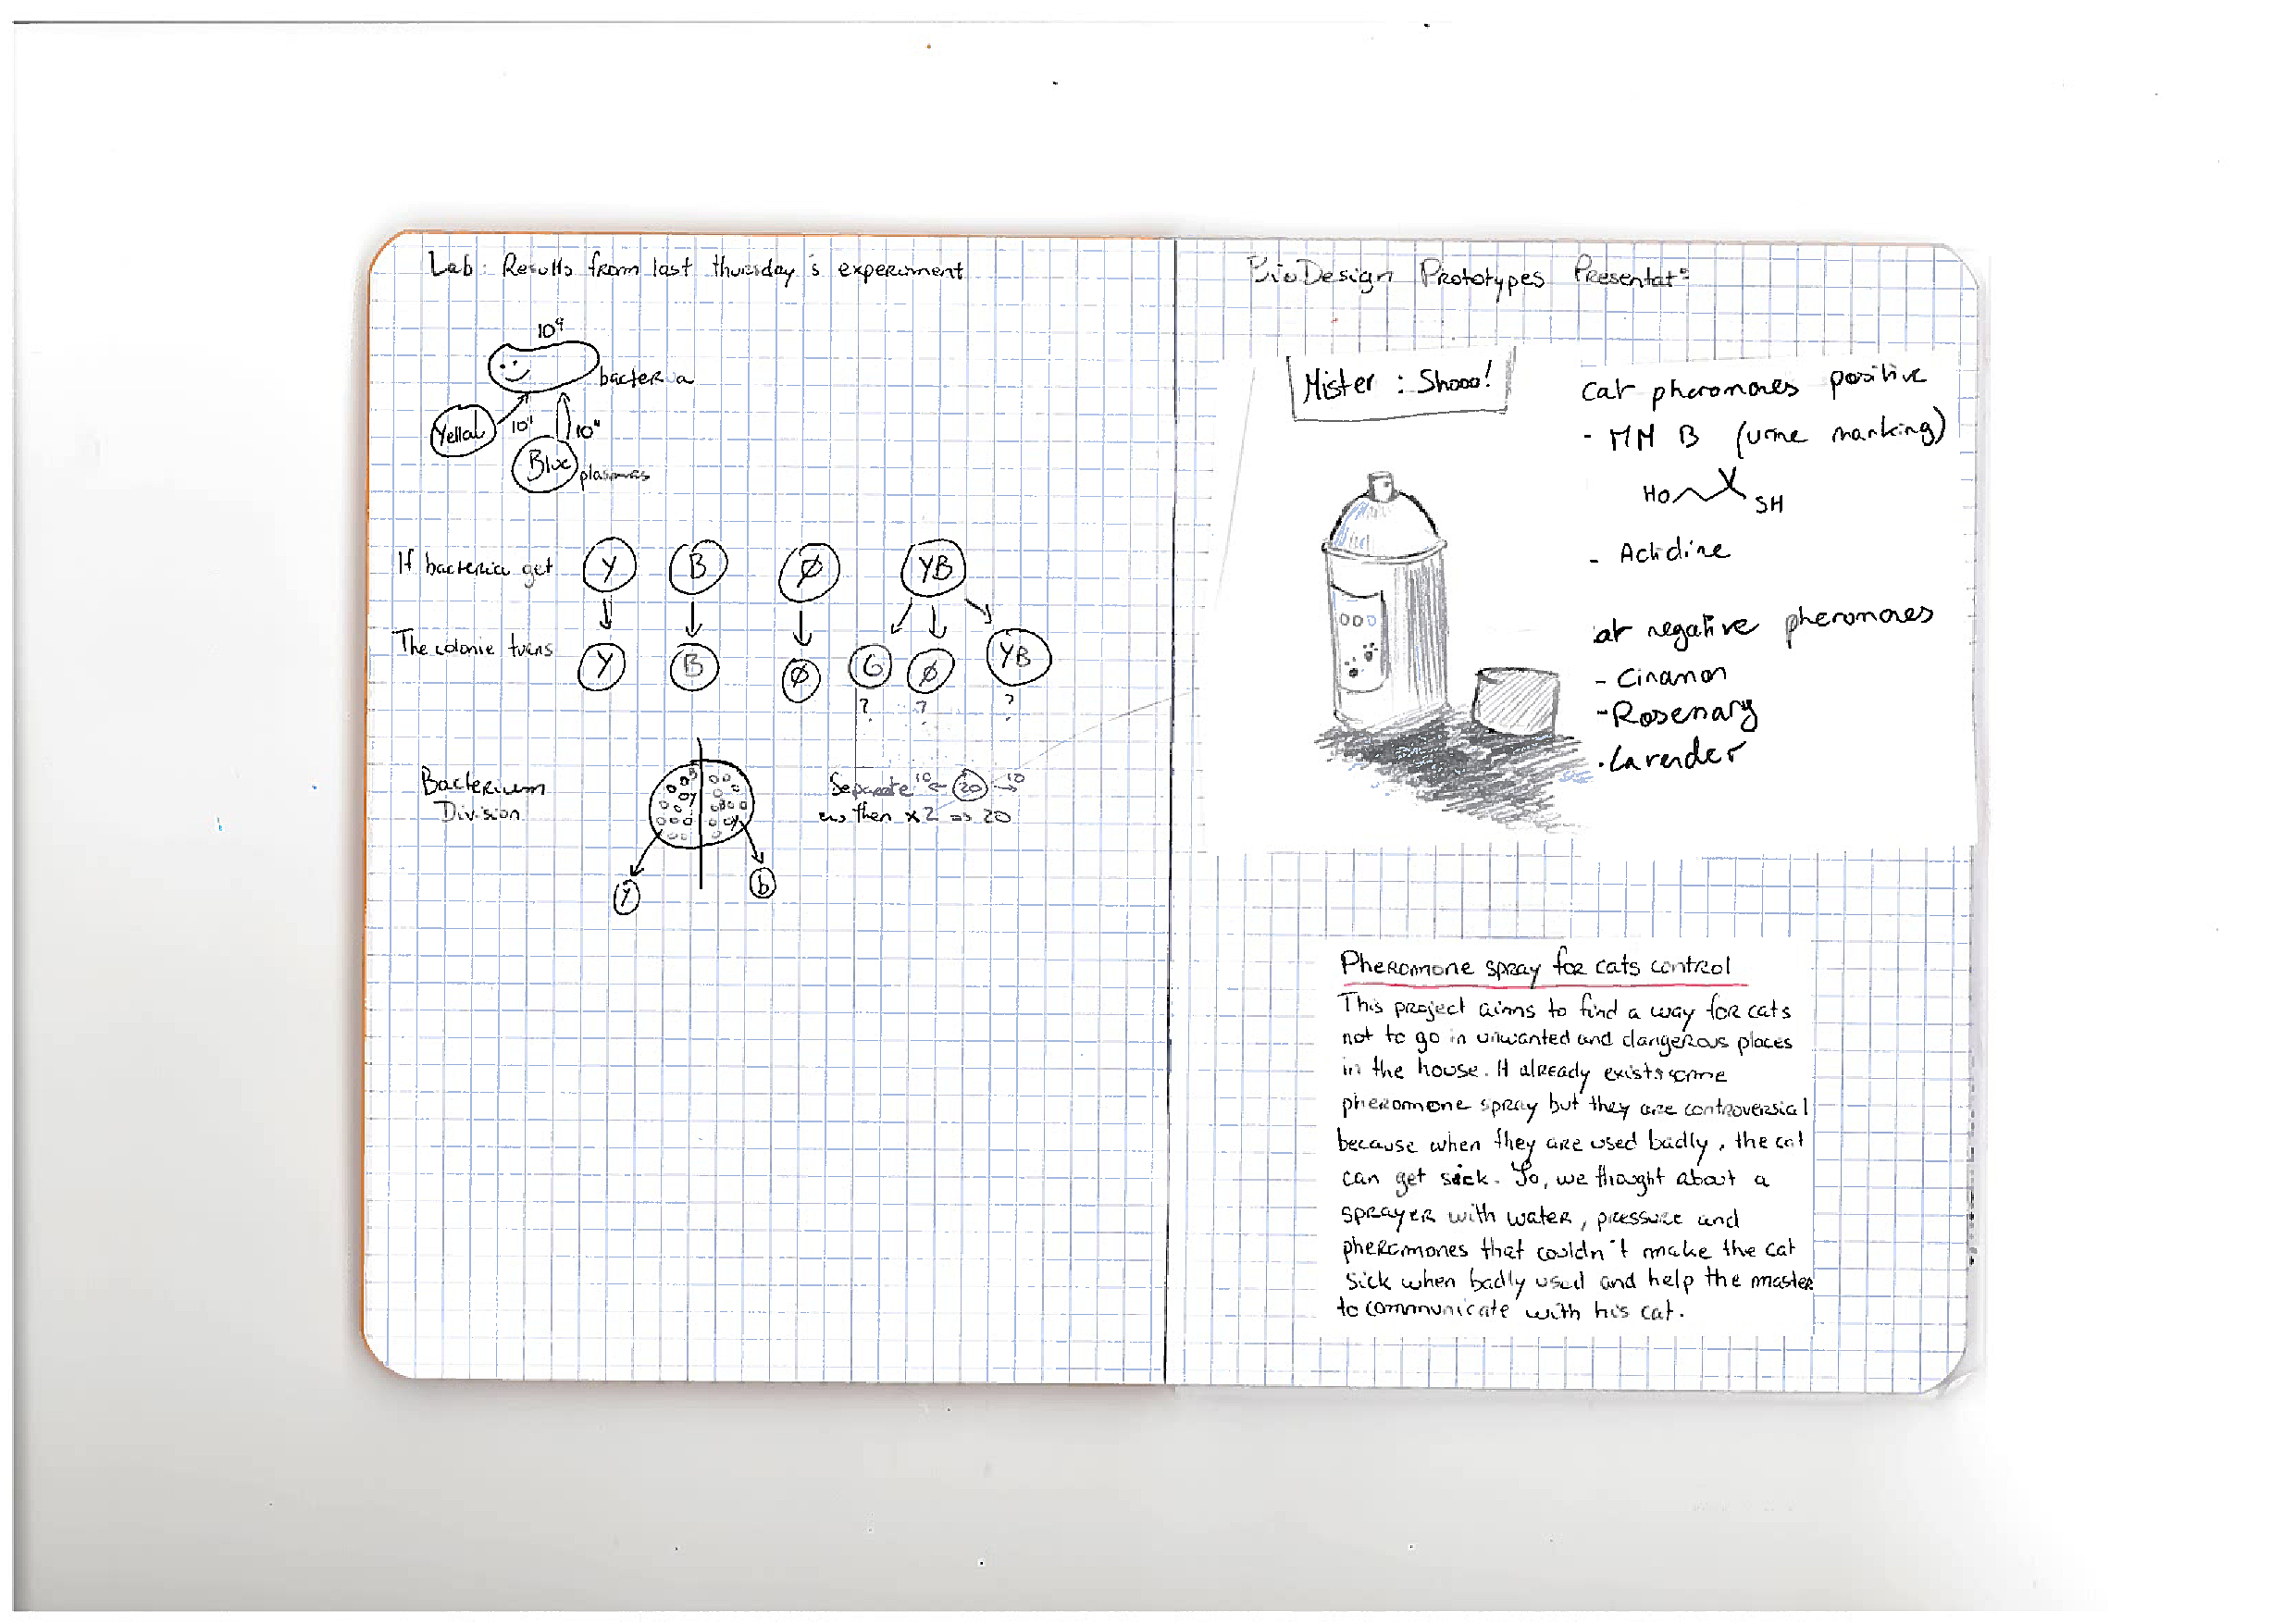 Lab: Results from last thursday's experiment
10⁹
bacteria
Yellow
10¹¹
10¹¹
Blue
plasmas
If bacteria get Y B Ø YB
The colonie turns Y B Ø G Ø YB
? ? ?
Bacterium
Division
Separate 10 ← 20 → 10
then x2 => 20
Y
b
BioDesign Prototypes Presentat°
Mister : Shooo!
cat pheromones positive
- MM B (urine marking)
HO SH
- Actidine
at negative pheromones
- Cinamon
- Rosemary
. Lavender
Pheromone spray for cats control
This project aims to find a way for cats
not to go in unwanted and dangerous places
in the house. It already exists some
pheromone spray but they are controversial
because when they are used badly, the cat
can get sick. So, we thought about a
sprayer with water, pressure and
pheromones that couldn't make the cat
sick when badly used and help the master
to communicate with his cat.